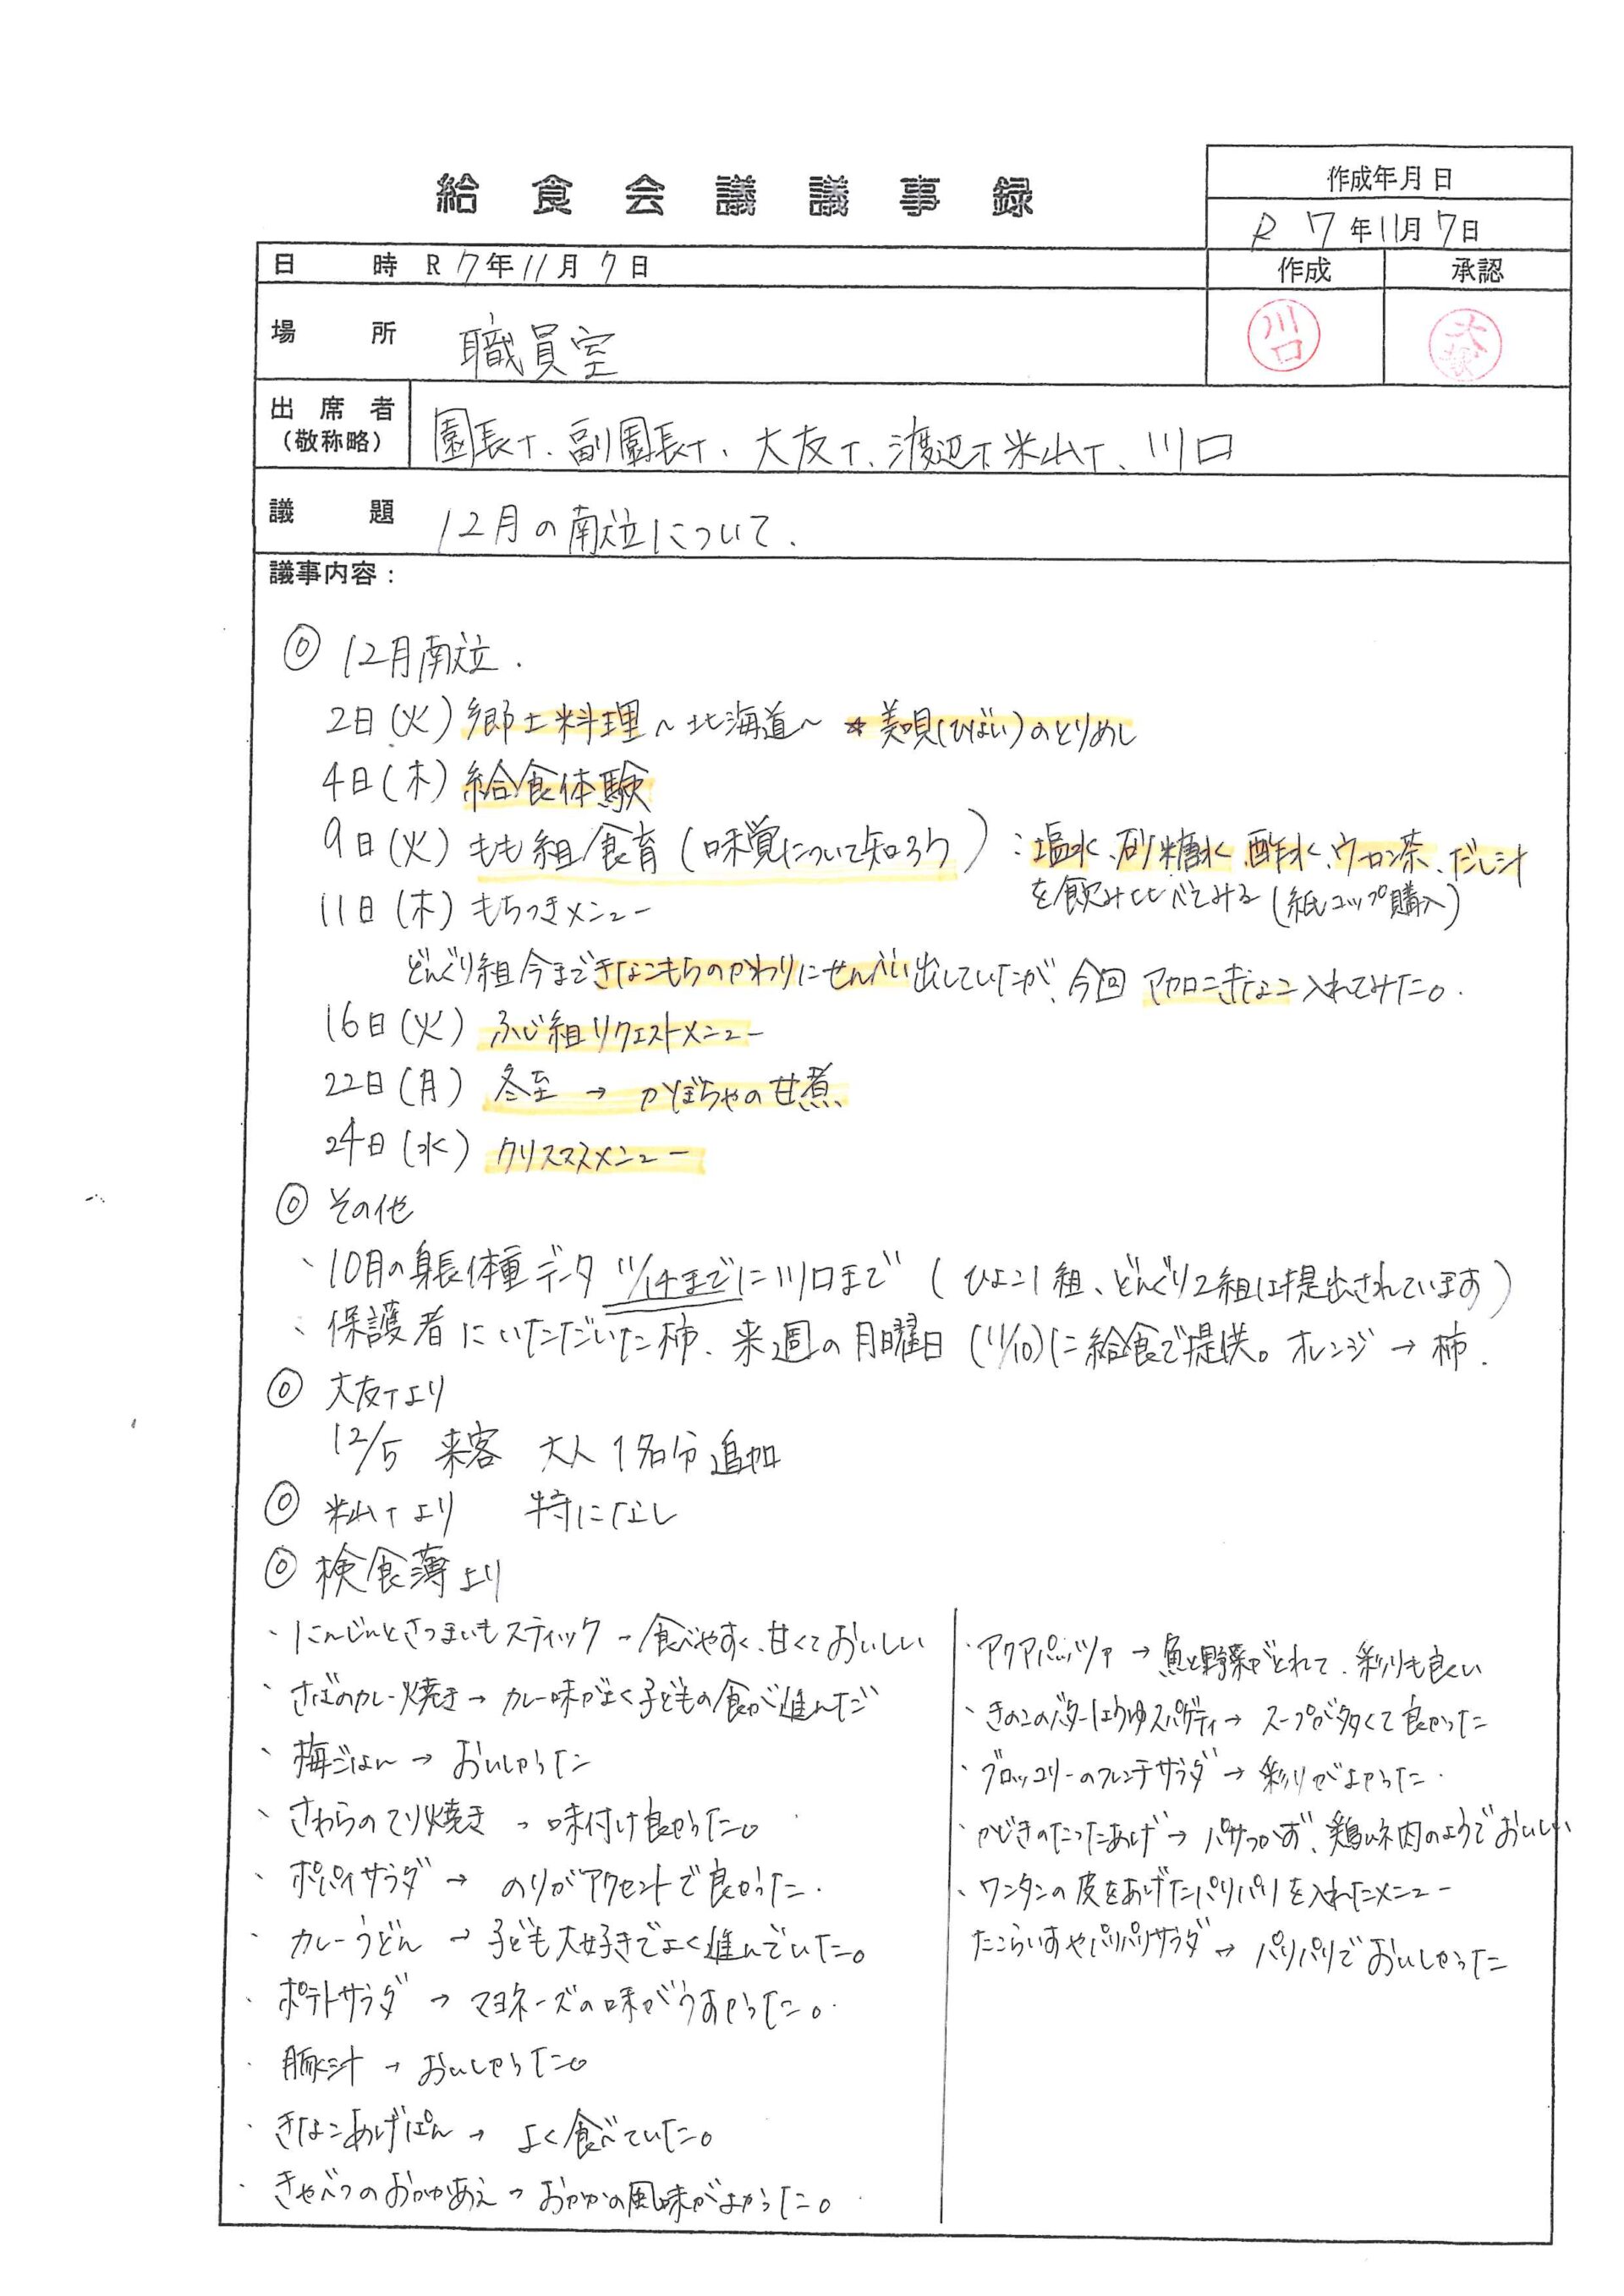 給食会議議事録
作成年月日
R 7年11月7日
日時 R 7年11月7日
作成 承認
川口
場所 職員室
出席者
(敬称略)
園長T、副園長T、大友T、渡辺T 米山T、川口
議題 12月の献立について.
議事内容:
◎ 12月献立.
2日(火) 郷土料理~北海道~ ☆美唄(びばい)のとりめし
4日(木) 給食体験
9日(火) もも組食育(味覚について知ろう) :塩水、砂糖水、酢水、ウーロン茶、だし汁
を飲み比べてみる(紙コップ購入)
11日(木) もちつきメニュー
どんぐり組今まできなこもちのかわりにせんべい出していたが、今回 マカロニきなこ入れてみた。
16日(火) ふじ組リクエストメニュー
22日(月) 冬至 → かぼちゃの甘煮
24日(水) クリスマスメニュー
◎ その他
、10月の身長体重データ 11/14までに川口まで (ひよこ1組、どんぐり2組は提出されています)
、保護者にいただいた柿、来週の月曜日(11/10)に給食で提供。オレンジ→柿.
◎ 大友Tより
12/5 来客 大人1名分追加
◎ 米山Tより 特になし
◎ 検食簿より
・にんじんとさつまいもスティック→食べやすく、甘くておいしい
、さばのカレー焼き→カレー味がよく子どもの食が進んだ
、梅ごはん→おいしかった
、さわらのてり焼き→味付け良かった。
、ポパイサラダ→のりがアクセントで良かった.
・カレーうどん→子ども大好きでよく進んでいた。
・ポテトサラダ→マヨネーズの味がうすかった。
・豚汁→おいしかった。
・きなこあげぱん→よく食べていた。
・きゃべつのおかかあえ→おかかの風味がよかった。
・アクアパッツァ→魚と野菜がとれて、彩りも良い
、きのこのバターしょうゆスパゲティ→スープが多くて良かった
・ブロッコリーのフレンチサラダ→彩りがよかった.
・かじきのたつたあげ→パサつかず、鶏むね肉のようでおいしい
、ワンタンの皮をあげたパリパリを入れたメニュー
たこらいすやパリパリサラダ→パリパリでおいしかった